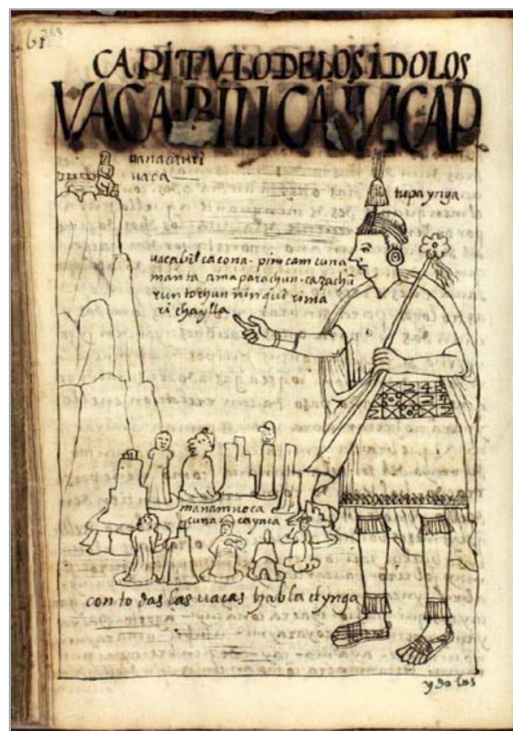 CAPITVLO DE LOS IDOLOS
VACA BILLCA INCAP
uanacauri
uaca
tupa ynga
uaca bilcacona · pim cam cuna
manta ama parachun · cazachū
runtochun ninqui rima
ri chaylla
manam noca
cuna
con todas las uacas habla el ynga
ydolos